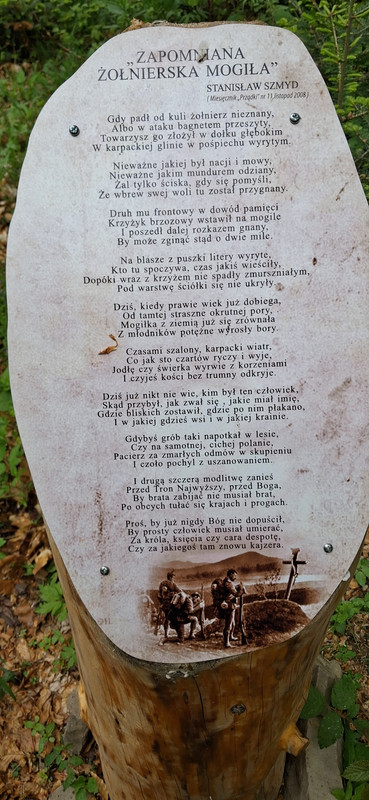 „ZAPOMNIANA
ŻOŁNIERSKA MOGIŁA”
STANISŁAW SZMYD
( Miesięcznik „Prządki” nr 11 listopad 2008 )
Gdy padł od kuli żołnierz nieznany,
Albo w ataku bagnetem przeszyty,
Towarzysz go złożył w dołku głębokim
W karpackiej glinie w pośpiechu wyrytym.
Nieważne jakiej był nacji i mowy,
Nieważne jakim mundurem odziany,
Żal tylko ściska, gdy się pomyśli,
Że wbrew swej woli tu został przygnany.
Druh mu frontowy w dowód pamięci
Krzyżyk brzozowy wstawił na mogile
I poszedł dalej rozkazem gnany,
By może zginąć stąd o dwie mile.
Na blasze z puszki litery wyryte,
Kto tu spoczywa, czas jakiś wieściły,
Dopóki wraz z krzyżem nie spadły zmurszniałym,
Pod warstwę ściółki się nie ukryły.
Dziś, kiedy prawie wiek już dobiega,
Od tamtej straszne okrutnej pory,
Mogiłka z ziemią już się zrównała
Z młodników potężne wyrosły bory.
Czasami szalony, karpacki wiatr,
Co jak sto czartów ryczy i wyje,
Jodłę czy świerka wyrwie z korzeniami
I czyjeś kości bez trumny odkryje.
Dziś już nikt nie wie, kim był ten człowiek,
Skąd przybył, jak zwał się , jakie miał imię,
Gdzie bliskich zostawił, gdzie po nim płakano,
I w jakiej gdzieś wsi i w jakiej krainie.
Gdybyś grób taki napotkał w lesie,
Czy na samotnej, cichej polanie,
Pacierz za zmarłych odmów w skupieniu
I czoło pochyl z uszanowaniem.
I drugą szczerą modlitwę zanieś
Przed Tron Najwyższy, przed Boga,
By brata zabijać nie musiał brat,
Po obcych tułać się krajach i progach.
Proś, by już nigdy Bóg nie dopuścił,
By prosty człowiek musiał umierać,
Za króla, księcia czy cara despotę,
Czy za jakiegoś tam znowu kajzera.